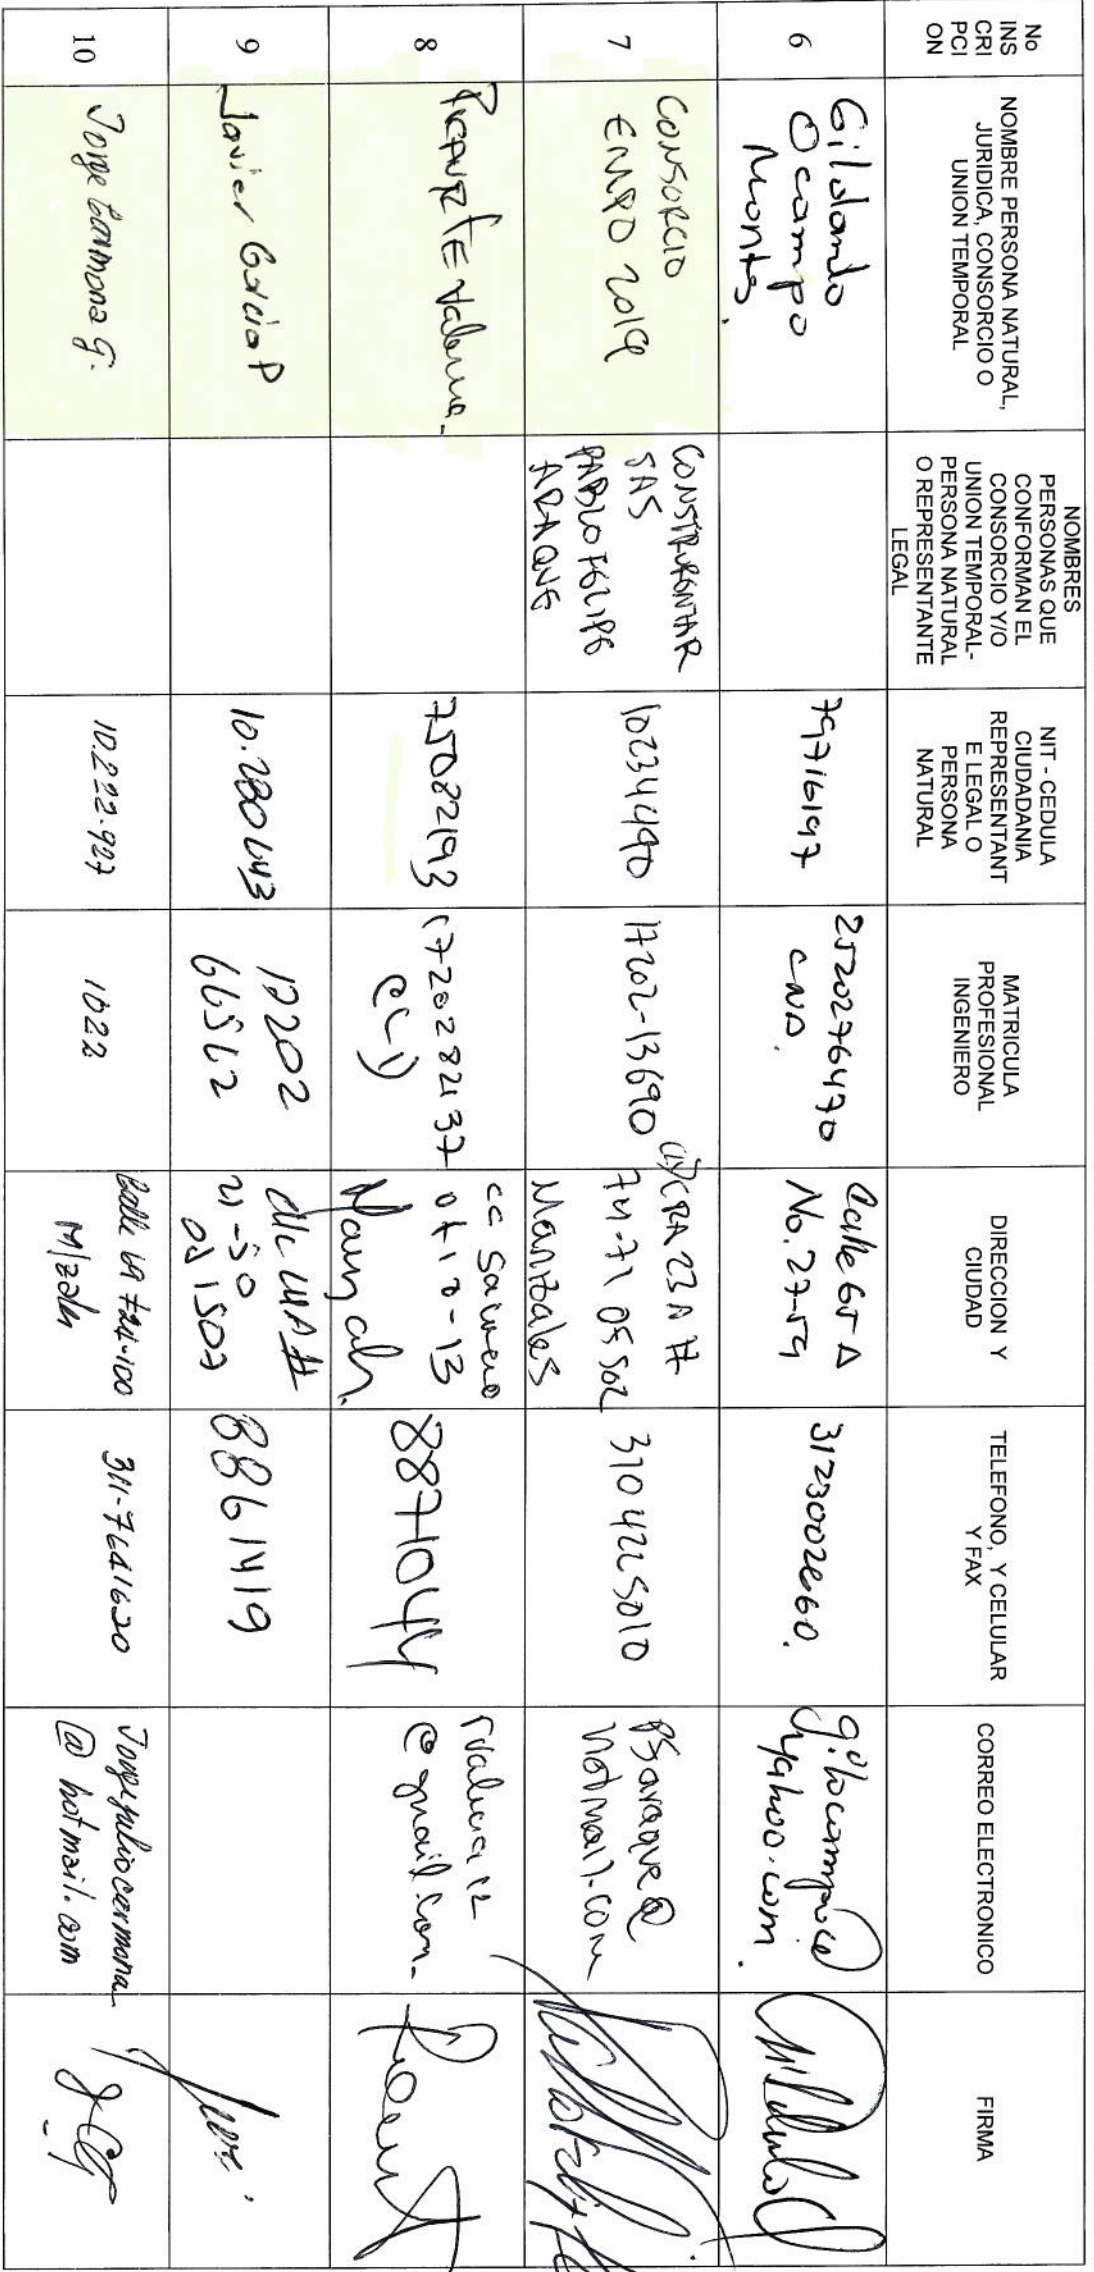 No
INS
CRI
PCI
ON
NOMBRE PERSONA NATURAL,
JURIDICA, CONSORCIO O
UNION TEMPORAL
NOMBRES
PERSONAS QUE
CONFORMAN EL
CONSORCIO Y/O
UNION TEMPORAL-
PERSONA NATURAL
O REPRESENTANTE
LEGAL
NIT - CEDULA
CIUDADANIA
REPRESENTANT
E LEGAL O
PERSONA
NATURAL
MATRICULA
PROFESIONAL
INGENIERO
DIRECCION Y
CIUDAD
TELEFONO, Y CELULAR
Y FAX
CORREO ELECTRONICO
FIRMA
6
Gildardo
Ocampo
Montes.
79716197
2520276470
CND.
Calle 65 A
No. 27-59
3123002660.
yahoo.com.
7
CONSORCIO
EMPO 2019
SAS
PABLO FELIPE
ARAQUE
10234490
17202-13690
CRA 23 A #
74-71 OF 502
Manizales
3104225010
Pfaraque@
hotmail.com
8
Valencia
75082193
1720282137
of 10-13
8871044
@gmail.com.
9
Javier Garcia P
10.280643
17202
66562
21-50
Of 1507
8861419
10
Jorge Carmona G.
10.222.927
1022
Calle 69 # 24-100
M/zales
311-7641620
Jorgejuliocarmona
@hotmail.com